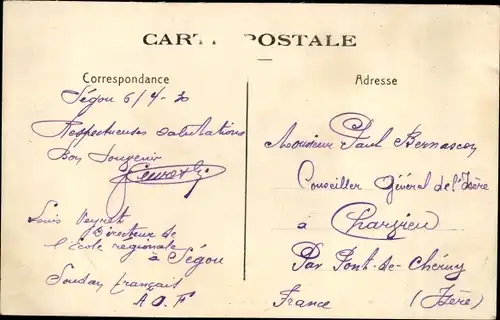 CARTE POSTALE
Correspondance
Ségou 6/4-30
Respectueuses salutations
Bon Souvenir
Louis Veyret
Directeur de
l'Ecole regionale
à Ségou
Soudan français
A O F
Adresse
Monsieur Paul Bernascon
Conseiller Général de l'Isère
à Charvieu
Par Pont-de-Chéruy
France (Isère)